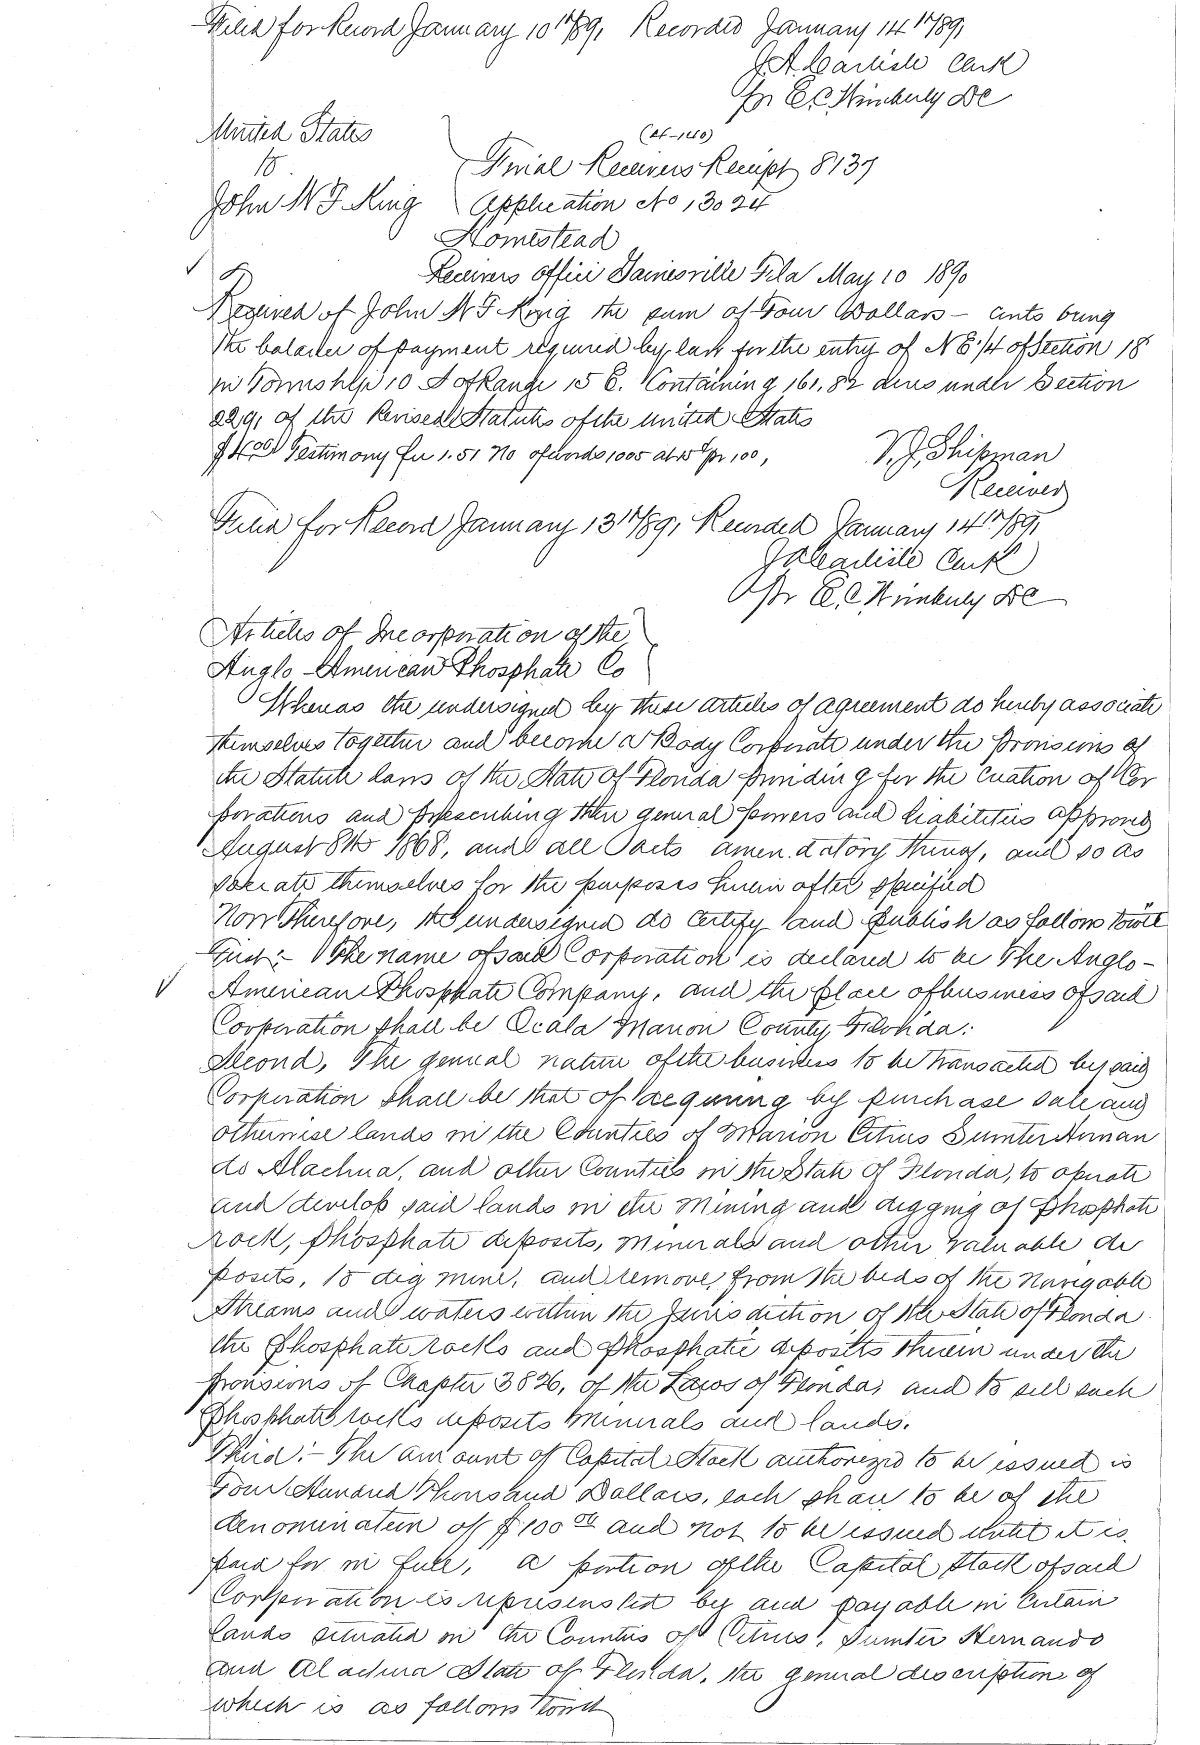 Filed for Record January 10th/891 Recorded January 14th/891
J.A. Carlisle Clerk
Pr E.C. Wimberly DC
United States
to
John W F King
(4-140)
Final Receivers Receipt 8137
Application No 13024
Homestead
Receivers office Gainesville Fla May 10 1890
Received of John W F King the sum of Four Dollars – cents being
the balance of payment required by law for the entry of N E 1/4 of Section 18
in Township 10 S of Range 15 E. Containing 161.82 acres under Section
2291 of the Revised Statutes of the United States
$4.00 Testimony fee 1.51 No of words 1005 at 15 ¢ pr 100,
V. J. Shipman
Receiver
Filed for Record January 13th/891 Recorded January 14th/891
J A Carlisle Clerk
Pr E. C. Wimberly DC
Articles of Incorporation of the
Anglo-American Phosphate Co
Whereas the undersigned by these articles of agreement do hereby associate
themselves together and become a Body Corporate under the provisions of
the Statute laws of the State of Florida providing for the creation of Cor
porations and prescribing their general powers and liabilities approved
August 8th 1868, and all acts amendatory thereof, and so as
sociate themselves for the purposes herein after specified
Now Therefore, the undersigned do certify and publish as follows towit
First:- The name of said Corporation is declared to be The Anglo-
American Phosphate Company, and the place of business of said
Corporation shall be Ocala Marion County Florida:
Second, The general nature of the business to be transacted by said
Corporation shall be that of acquiring by purchase sale and
otherwise lands in the Counties of Marion Citrus Sumter Hernan
do Alachua, and other Counties in the State of Florida, to operate
and develop said lands in the mining and digging of phosphate
rock, phosphate deposits, minerals and other valuable de
posits, to dig mine, and remove from the beds of the navigable
Streams and waters within the jurisdiction of the State of Florida
the phosphate rocks and phosphatic deposits therein under the
provisions of Chapter 3826, of the Laws of Florida, and to sell such
phosphate rocks deposits minerals and lands.
Third:- The amount of Capital Stock authorized to be issued is
Four Hundred Thousand Dollars, each share to be of the
denomination of $100 00 and not to be issued until it is
paid for in full, a portion of the Capital Stock of said
Corporation is represented by and payable in certain
lands situated in the Counties of Citrus, Sumter Hernando
and Alachua State of Florida, the general description of
which is as follows towit